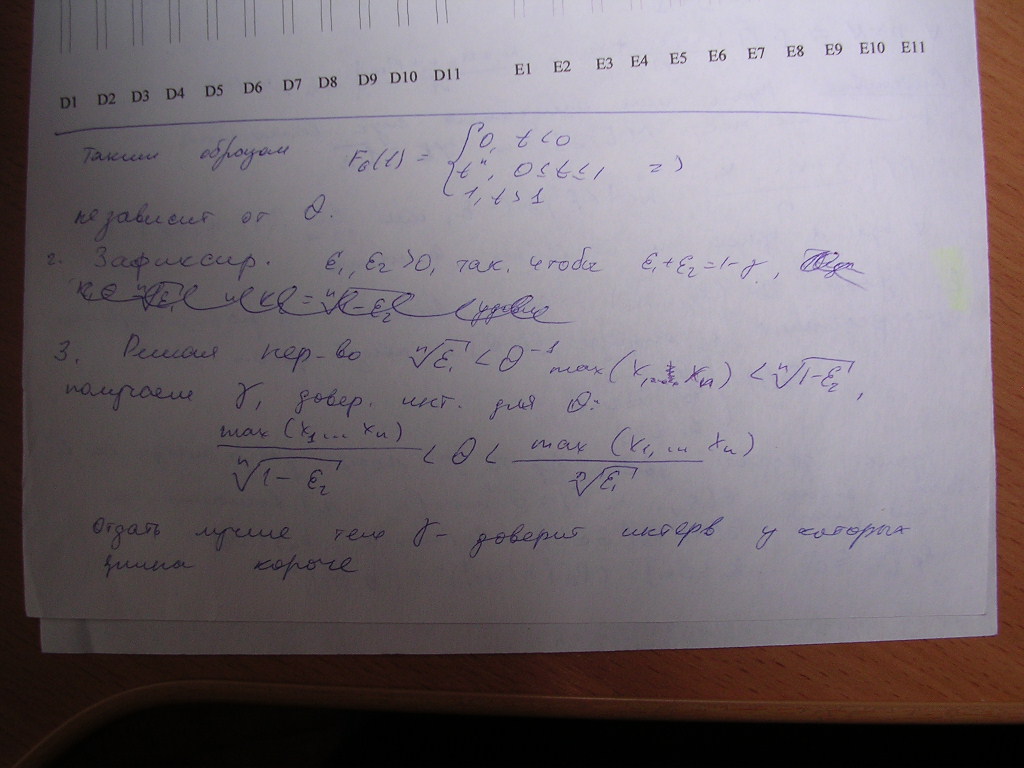 D1 D2 D3 D4 D5 D6 D7 D8 D9 D10 D11 E1 E2 E3 E4 E5 E6 E7 E8 E9 E10 E11
Таким образом F_G(t) = { 0, t < 0
t^n, 0 ≤ t ≤ 1 =>
1, t > 1
независит от θ.
2. Зафиксир. ε₁, ε₂ > 0, так. чтобы ε₁ + ε₂ = 1 - γ,
3. Решая нер-во ⁿ√ε₁ < θ⁻¹ max(x₁, ... xₙ) < ⁿ√(1-ε₂),
получаем γ, довер. инт. для θ:
max (x₁ ... xₙ) / ⁿ√(1-ε₂) < θ < max (x₁, ... xₙ) / ⁿ√ε₁
Отдать лучше тем γ - доверит интерв у которых
длина короче